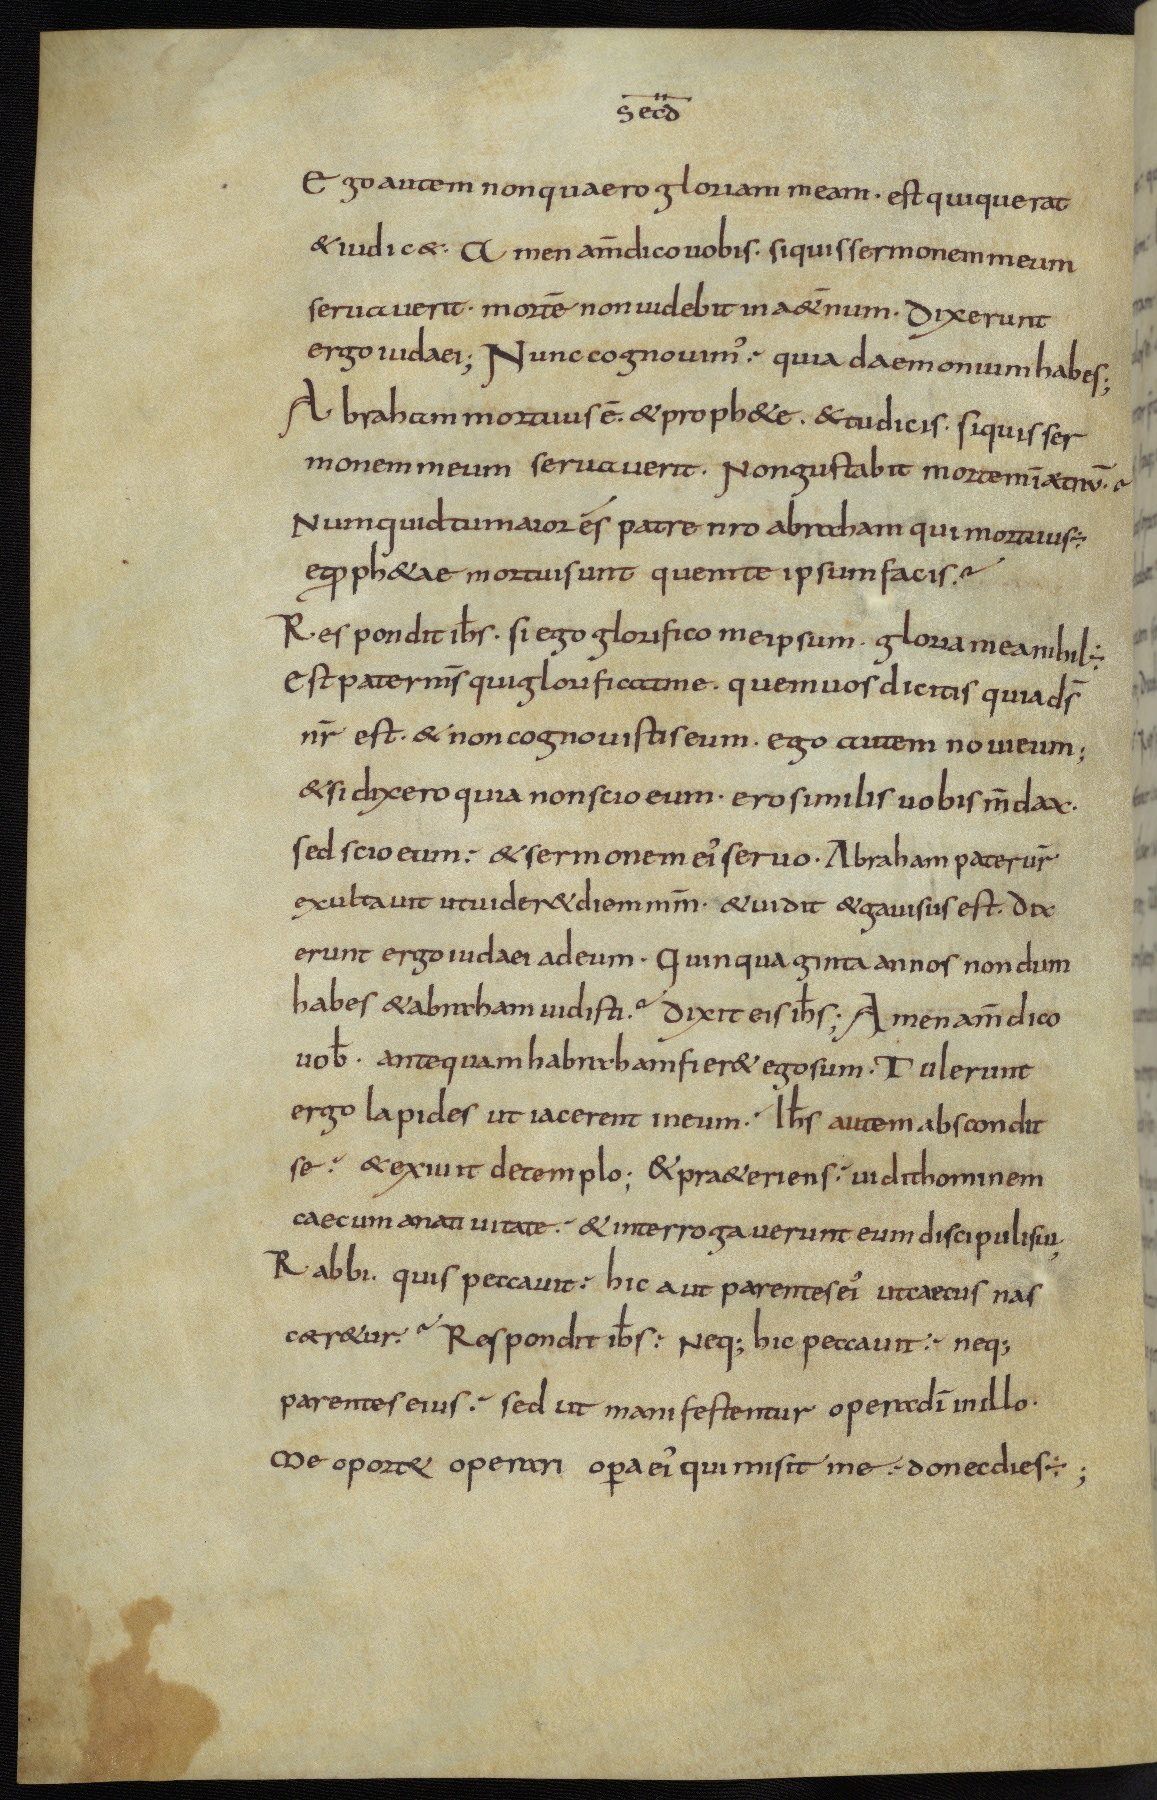 Secd̄
Ego autem non quaero gloriam meam · est qui querat
& iudic& · Amen am̄ dico uobis · si quis sermonem meum
seruauerit · mortē non uidebit in a&̄num · Dixerunt
ergo iudaei; Nunc cognouim᾽ : quia daemonium habes;
Abraham mortuus ē · & proph&e · & tu dicis · si quis ser
monem meum seruauerit · Non gustabit mortem ī aetnū ·
Numquid tu maior és patre nro abraham qui mortuus ÷
et ꝓph&ae mortui sunt quem te ipsum facis.
Respondit ihs̄ · si ego glorifico me ipsum · gloria mea nihil ÷
Est pater ms̄ qui glorificat me · quem uos dicitis quia ds̄
nr̄ est · & non cognouistis eum · ego autem noui eum;
& si dixero quia non scio eum · ero similis uobis m̄dax ·
sed scio eum : & sermonem ei᾽ seruo · Abraham pater ur̄
exultauit ut uider& diem mm̄ · & uidit & gauisus est · Dix
erunt ergo iudaei ad eum · Quinquaginta annos nondum
habes & abraham uidisti. Dixit eis ihs̄; Amen am̄ dico
uob̄ · antequam habraham fier& ego sum · Tulerunt
ergo lapides ut iacerent in eum : Ihs̄ autem abscondit
se : & exiuit de templo; & pra&eriens : uidit hominem
caecum a natiuitate : & interrogauerunt eum discipuli sui,
Rabbi · quis peccauit : hic aut parentes ei᾽ ut caecus nas
caer&ur : Respondit ihs̄ : Neq; hic peccauit : neq;
parentes eius : sed ut manifestentur opera dī in illo ·
Me oport& operari oꝑa ei᾽ qui misit me : donec dies ÷ ;